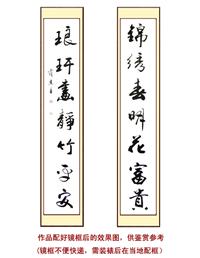 錦綉春明花富貴
琅玕晝靜竹平安
作品配好镜框后的效果图，供鉴赏参考
(镜框不便快递，需装裱后在当地配框)